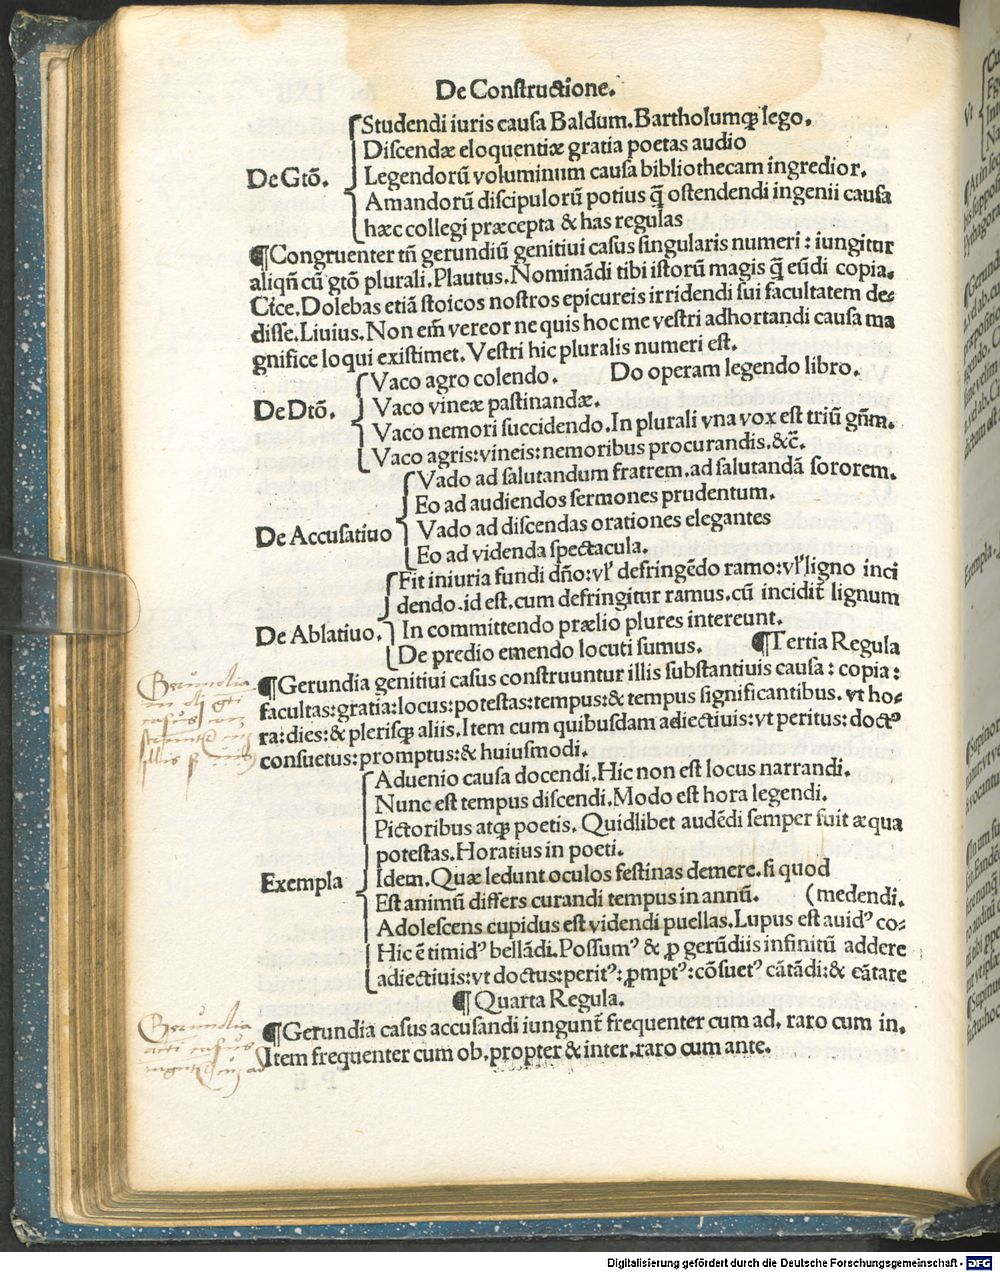 De Constructione.
Studendi iuris causa Baldum. Bartholumqꝫ lego.
Discendæ eloquentiæ gratia poetas audio
De Gtõ. Legendorũ voluminum causa bibliothecam ingredior.
Amandorũ discipulorũ potius q̃ ostendendi ingenii causa
hæc collegi præcepta & has regulas
¶Congruenter tñ gerundiũ genitiui casus singularis numeri : iungitur
aliqñ cũ gtõ plurali. Plautus. Nominãdi tibi istorũ magis q̃ eũdi copia.
Cice. Dolebas etiã stoicos nostros epicureis irridendi sui facultatem de⸗
disse. Liuius. Non em̃ vereor ne quis hoc me vestri adhortandi causa ma
gnifice loqui existimet. Vestri hic pluralis numeri est.
Vaco agro colendo. Do operam legendo libro.
De Dtõ. Vaco vineæ pastinandæ.
Vaco nemori succidendo. In plurali vna vox est triũ gñm.
Vaco agris: vineis: nemoribus procurandis. &c̃.
Vado ad salutandum fratrem. ad salutandã sororem.
Eo ad audiendos sermones prudentum.
De Accusatiuo Vado ad discendas orationes elegantes
Eo ad videnda spectacula.
Fit iniuria fundi dño: vl' defringẽdo ramo: vl' ligno inci
dendo. id est. cum defringitur ramus. cũ incidit̃ lignum
De Ablatiuo. In committendo prælio plures intereunt.
De predio emendo locuti sumus. ¶Tertia Regula
¶Gerundia genitiui casus construuntur illis substantiuis causa : copia :
facultas: gratia: locus: potestas: tempus: & tempus significantibus. vt ho⸗
ra: dies: & plerisqꝫ aliis. Item cum quibusdam adiectiuis: vt peritus: doctꝰ
consuetus: promptus: & huiusmodi.
Aduenio causa docendi. Hic non est locus narrandi.
Nunc est tempus discendi. Modo est hora legendi.
Pictoribus atqꝫ poetis. Quidlibet audẽdi semper fuit æqua
potestas. Horatius in poeti.
Exempla Idem. Quæ ledunt oculos festinas demere. si quod
Est animũ differs curandi tempus in annũ. (medendi.
Adolescens cupidus est videndi puellas. Lupus est auidꝰ co⸗
Hic ẽ timidꝰ bellãdi. Possumꝰ & ꝓ gerũdiis infinitũ addere
adiectiuis: vt doctus: peritꝰ: ꝓmptꝰ: cõsuetꝰ cãtãdi: & cãtare
¶Quarta Regula.
¶Gerundia casus accusandi iungunt̃ frequenter cum ad. raro cum in.
Item frequenter cum ob. propter & inter. raro cum ante.
Gerundia
casus
Gerundia
casus
Digitalisierung gefördert durch die Deutsche Forschungsgemeinschaft - DFG